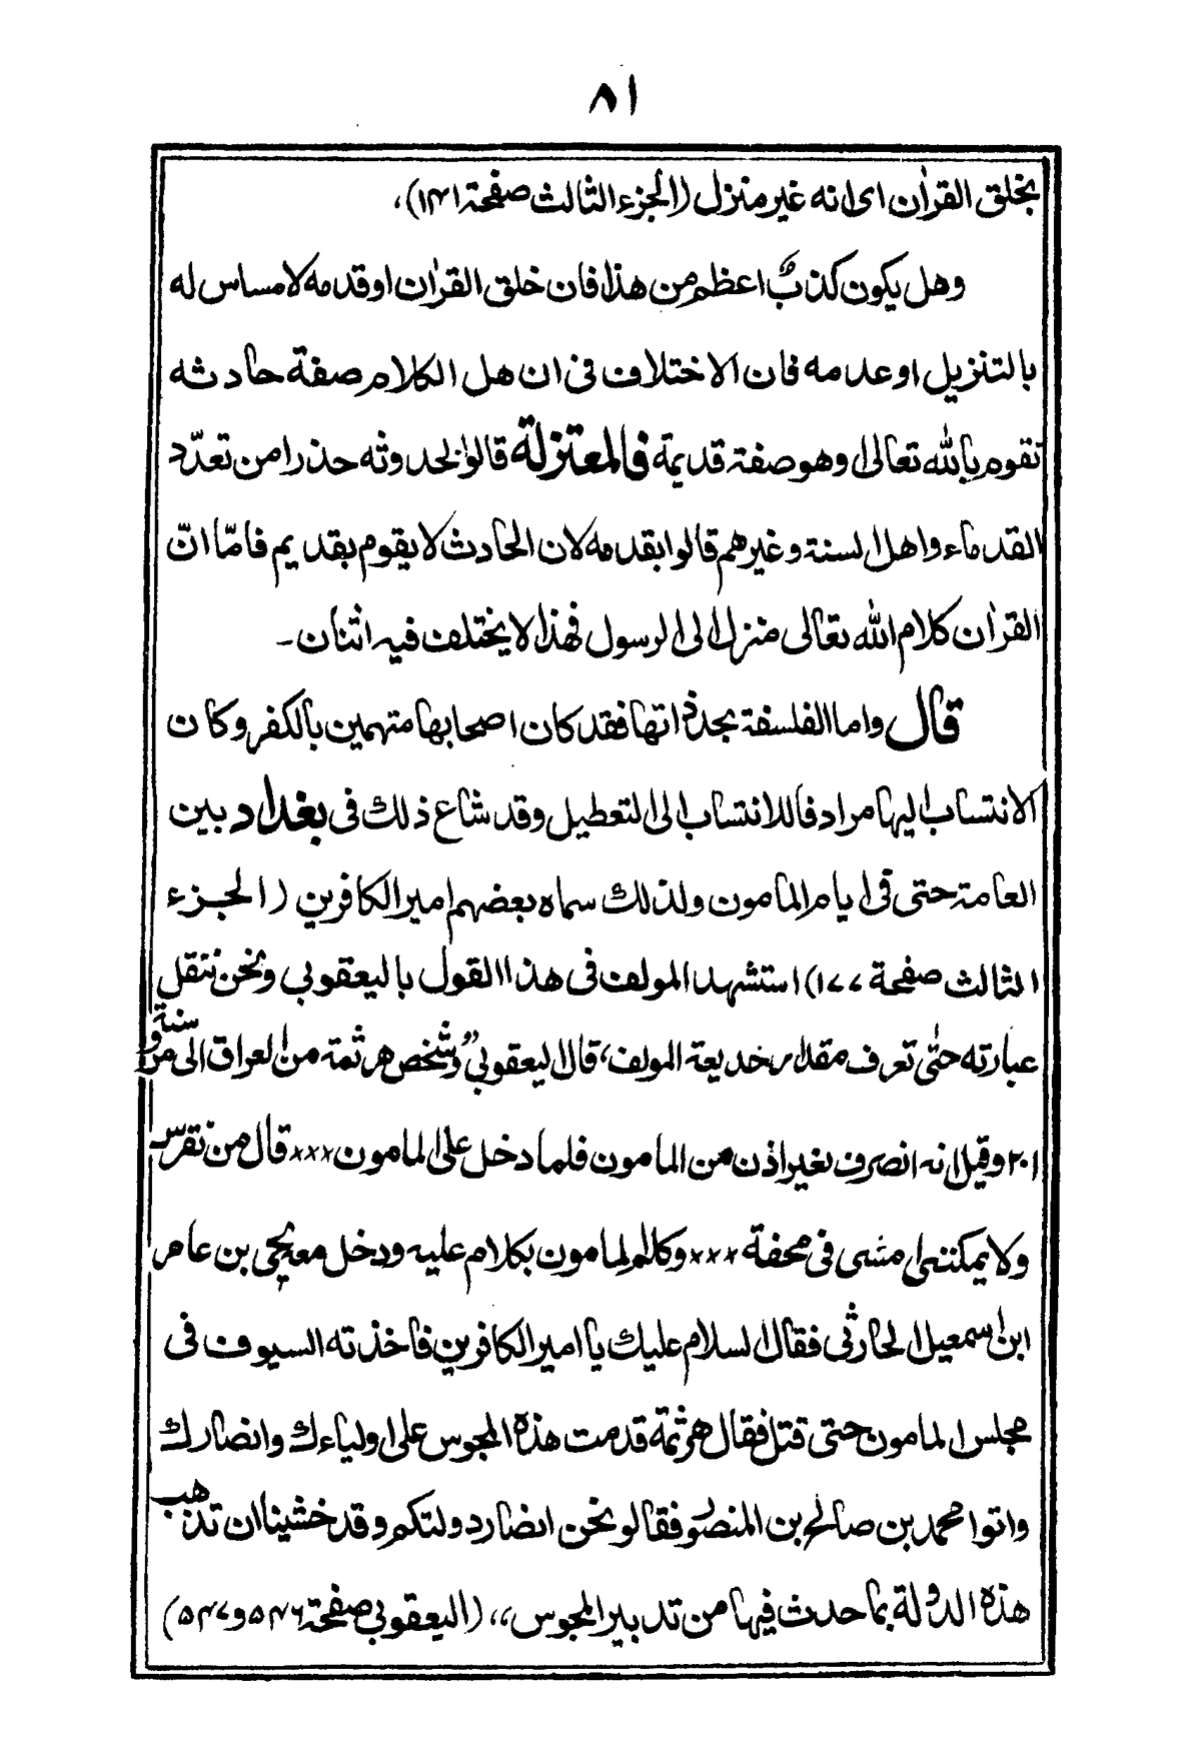 ٨١
بخلق القرأن اى انه غير منزل (الجزء الثالث صفحة ١٤١)،
وهل يكون كذبٌ اعظم من هذا فان خلق القرأن او قدمه لامساس له
بالتنزيل او عدمه فان الاختلاف فى ان هل الكلام صفة حادثه
تقوم بالله تعالىٰ وهو صفة قديمة فالمعتزلة قالوا بحدوثه حذرا من تعدّد
القدماء واهل السنة وغيرهم قالوا بقدمه لان الحادث لا يقوم بقديم فامّا انّ
القرأن كلام الله تعالى منزل الى الرسول فهذا لا يختلف فيه اثنان ـ
قال واما الفلسفة بحد ذاتها فقد كان اصحابها متهمين بالكفر وكان
الانتساب اليها مرادفا للانتساب الى التعطيل وقد شاع ذلك فى بغداد بين
العامة حتى فى ايام المامون ولذلك سماه بعضهم امير الكافرين (الجزء
الثالث صفحة ١٧٧) استشهد المولف فى هذا القول باليعقوبى ونحن ننقل
عبارته حتىٰ تعرف مقدار خديعة المولف، قال اليعقوبى” وشخص هرثمة من العراق الى مرو سنة
٢٠١ وقيل انه انصرف بغير اذن من المامون فلما دخل على المامون ××× قال من نقرس
ولا يمكننى امشى فى محفة ××× وكلم المامون بكلام عليه ودخل معه يحيى بن عامر
ابن اسمعيل الحارثى فقال السلام عليك يا امير الكافرين فاخذته السيوف فى
مجلس المامون حتى قتل فقال هرثمة قدمت هذه المجوس على اولياءك وانصارك
واتوا محمد بن صالح بن المنصور فقالو نحن انصار دولتكم وقد خشينا ان تذهب
هذه الدولة بما حدث فيها من تدبير المجوس،، (اليعقوبى صفحة ٥٤٦ و ٥٤٧)